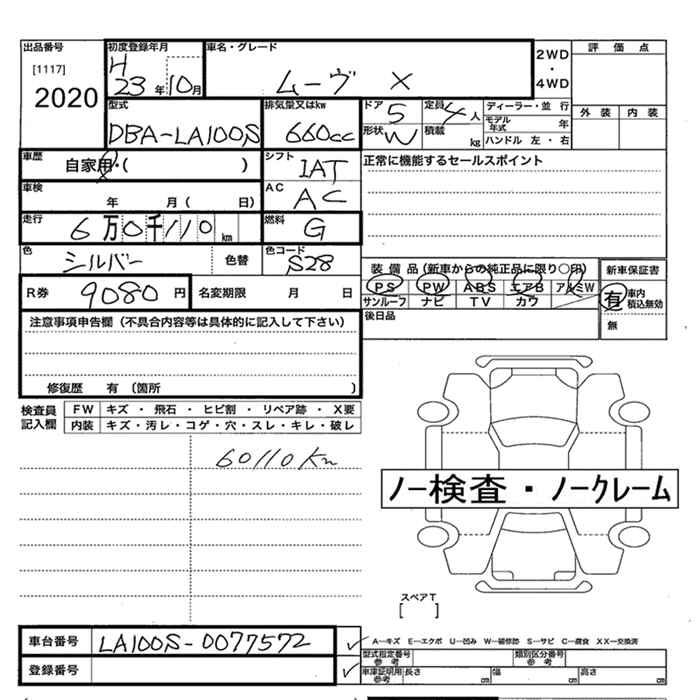 出品番号 初度登録年月 車名・グレード 2WD・4WD 評価点
[1117] H
2020 23年10月 ムーヴ X
型式 排気量又はkw ドア 5 定員 4人 ディーラー・並行 外装 内装
DBA-LA100S 660cc 形状 W 積載 kg モデル年式 年
ハンドル 左・右
車歴 自家用・( ) シフト IAT 正常に機能するセールスポイント
車検 年 月( 日) AC AC
走行 6万0千110km 燃料 G
色 シルバー 色替 色コード S28
装備品(新車からの純正品に限り○印) 新車保証書
R券 9080円 名変期限 月 日 PS PW ABS エアB アルミW 有 車内積込無効
サンルーフ ナビ TV カワ
注意事項申告欄(不具合内容等は具体的に記入して下さい) 後日品 無
修復歴 有(箇所 )
検査員記入欄 FW キズ・飛石・ヒビ割・リペア跡・X要
内装 キズ・汚レ・コゲ・穴・スレ・キレ・破レ
60110Km
ノー検査・ノークレーム
スペアT
[ ]
車台番号 LA100S-0077572
A―キズ E―エクボ U―凹み W―補修跡 S―サビ C―腐食 XX―交換済
登録番号 型式指定番号 参考 類別区分番号 参考
車庫証明用 参考 長さ cm 幅 cm 高さ cm